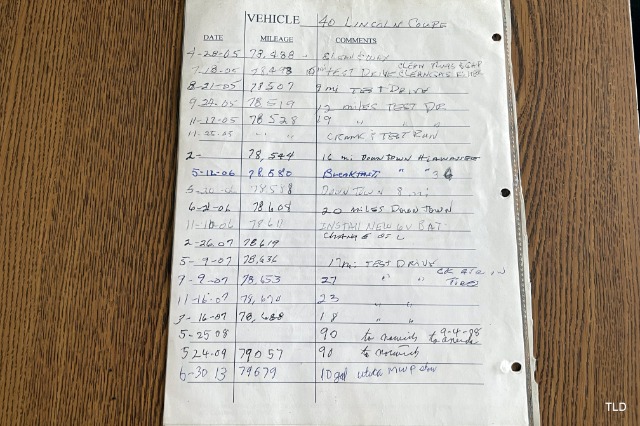 VEHICLE 40 LINCOLN COUPE
DATE MILEAGE COMMENTS
4-28-05 78,488
CLEAN PLUGS & GAP
78493 TEST DRIVE CLEAN GAS FILTER
8-21-05 78507 9 mi TEST DRIVE
9-24-05 78519 12 miles TEST DR
11-12-05 78528 19 " "
11-25-05 " " CRANK & TEST RUN
2- 78,544 16 mi DOWNTOWN
5-12-06 78580 BREAKFAST " " 36
78588 DOWNTOWN 8 mi
6-21-06 78608 20 MILES DOWNTOWN
11-10-06 78611 INSTALL NEW 6V BAT.
CHANGE OIL
2-26-07 78619
5-9-07 78,636 17mi TEST DRIVE
CK AIR IN
7-9-07 78,653 27 " " TIRES
11-16-07 78,670 23 " "
3-16-07 78,688 18 " "
5-25 08 90 to norwich to 9-4-08
5 24-09 79057 90 to norwich
6-30 13 79679 10 gal MWP
TLD